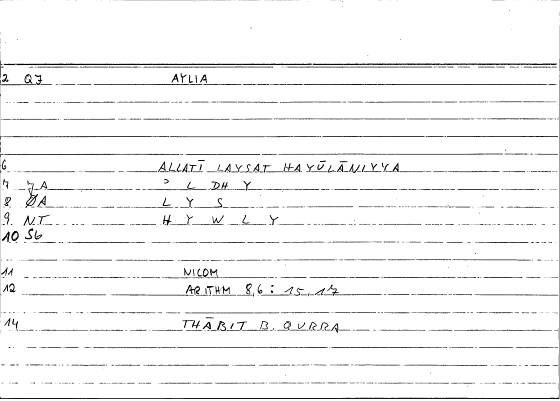 2 QJ AYLIA
6 ALLATĪ LAYSAT HAYŪLĀNIYYA
7 JA ᵓ L DH Y
8 ØA L Y S
9. NT H Y W L Y
10 S6
11 NICOM
12 ARITHM 8,6 : 15,17
14 THĀBIT B. QURRA